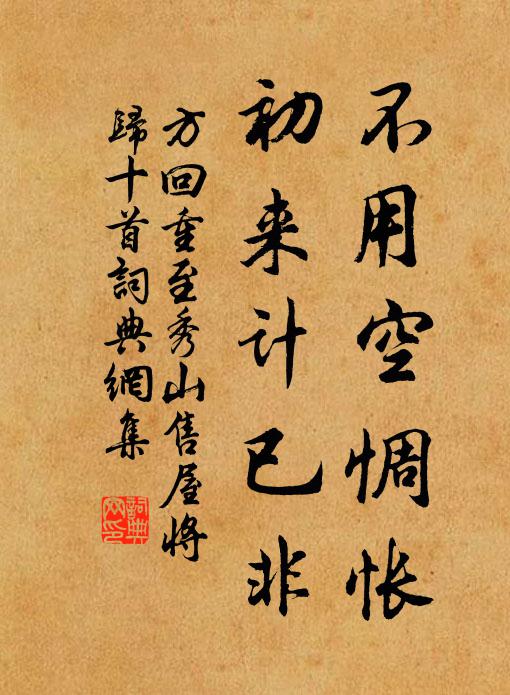 不用空惆怅
初来计已非
方回重至秀山售屋将
歸十首詞典網集
詞典
网印